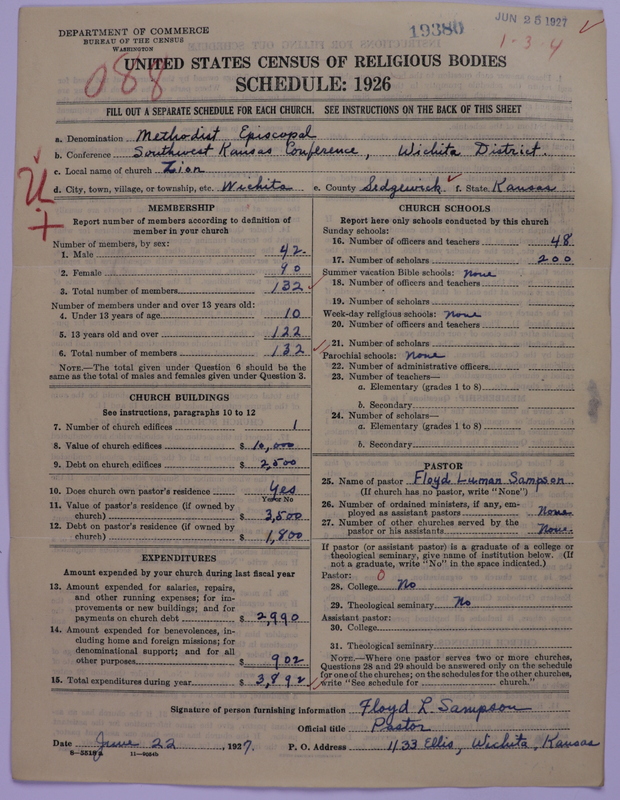 DEPARTMENT OF COMMERCE
BUREAU OF THE CENSUS
WASHINGTON
19380
JUN 25 1927
1-3-4
088
UNITED STATES CENSUS OF RELIGIOUS BODIES
SCHEDULE: 1926
FILL OUT A SEPARATE SCHEDULE FOR EACH CHURCH. SEE INSTRUCTIONS ON THE BACK OF THIS SHEET
a. Denomination Methodist Episcopal
b. Conference Southwest Kansas Conference, Wichita District.
c. Local name of church Zion
d. City, town, village, or township, etc. Wichita e. County Sedgewick f. State Kansas
MEMBERSHIP
Report number of members according to definition of
member in your church
Number of members, by sex:
1. Male 42
2. Female 90
3. Total number of members 132
Number of members under and over 13 years old:
4. Under 13 years of age 10
5. 13 years old and over 122
6. Total number of members 132
NOTE.—The total given under Question 6 should be
same as the total of males and females given under Question 3.
CHURCH BUILDINGS
See instructions, paragraphs 10 to 12
7. Number of church edifices 1
8. Value of church edifices $ 10,000
9. Debt on church edifices $ 2,500
10. Does church own pastor's residence Yes
Yes or No
11. Value of pastor's residence (if owned by
church) $ 3,500
12. Debt on pastor's residence (if owned by
church) $ 1,800
EXPENDITURES
Amount expended by your church during last fiscal year
13. Amount expended for salaries, repairs,
and other running expenses; for im-
provements or new buildings; and for
payments on church debt $ 2,990
14. Amount expended for benevolences, in-
cluding home and foreign missions; for
denominational support; and for all
other purposes $ 902
15. Total expenditures during year $ 3,892
CHURCH SCHOOLS
Report here only schools conducted by this church
Sunday schools:
16. Number of officers and teachers 48
17. Number of scholars 200
Summer vacation Bible schools: none
18. Number of officers and teachers
19. Number of scholars
Week-day religious schools: none
20. Number of officers and teachers
21. Number of scholars
Parochial schools: none
22. Number of administrative officers
23. Number of teachers—
a. Elementary (grades 1 to 8)
b. Secondary
24. Number of scholars—
a. Elementary (grades 1 to 8)
b. Secondary
PASTOR
25. Name of pastor Floyd Luman Sampson
(If church has no pastor, write "None")
26. Number of ordained ministers, if any, em-
ployed as assistant pastors None
27. Number of other churches served by the
pastor or his assistants None.
If pastor (or assistant pastor) is a graduate of a college or
theological seminary, give name of institution below. (If
not a graduate, write "No" in the space indicated.)
Pastor: 0
28. College No
29. Theological seminary No
Assistant pastor:
30. College
31. Theological seminary
NOTE.—Where one pastor serves two or more churches,
Questions 28 and 29 should be answered only on the schedule
for one of the churches; on the schedules for the other churches,
write "See schedule for church."
Signature of person furnishing information Floyd L. Sampson
Official title Pastor
Date June 22, 1927. P. O. Address 1133 Ellis, Wichita, Kansas